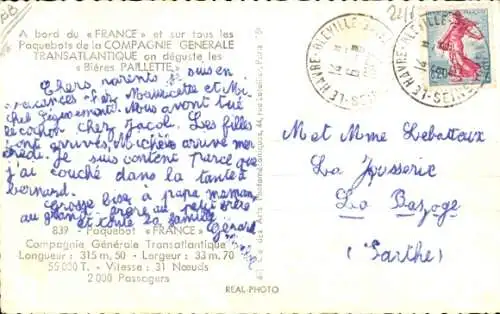 A bord du « FRANCE » et sur tous les
Paquebots de la COMPAGNIE GENERALE
TRANSATLANTIQUE on déguste les
« Bières PAILLETTE »
Chers parents je suis en
vacances chez Mauricette et Mi-
chel Nous avons tué
le cochon chez Jacob. Les filles
ont arrivés, Michèle arrive mer-
credi. Je suis content parce que
j'ai couché dans la tante à
bernard.
Grosse bise à papa maman
au grand frère au petit frère
et toute la famille
Gérard
839 - Paquebot « FRANCE »
Compagnie Générale Transatlantique
Longueur : 315 m, 50 - Largeur : 33 m. 70
55.000 T. - Vitesse : 31 Nœuds
2.000 Passagers
REAL-PHOTO
LE HAVRE-BLEVILLE
LE HAVRE-BLEVILLE
Met Mme Lebattaux
La Jousserie
La Bazoge
(Sarthe)